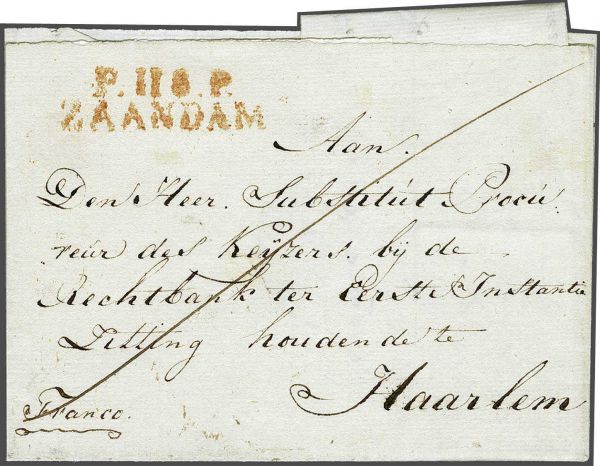 P.118.P.
ZAANDAM
Aan.
Den Heer. Substitút Procú:
reúr des Keÿzers. bÿ de
Rechtbank ter Eerste Instantie
Zitting houdende te
Haarlem
Franco.